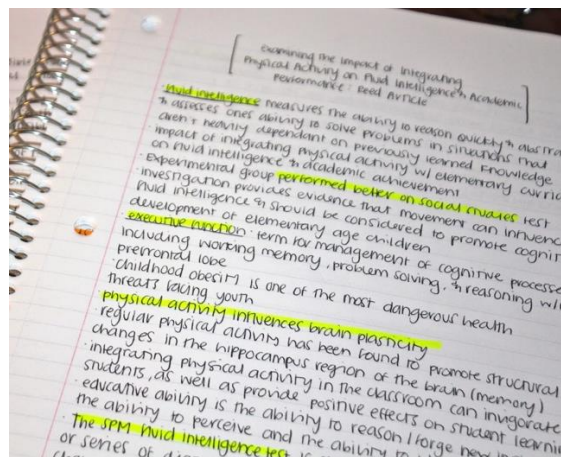 Examining the Impact of Integrating
Physical Activity on Fluid Intelligence & Academic
Performance: Reed Article
· fluid intelligence measures the ability to reason quickly & abstra
& assesses ones ability to solve problems in situations that
aren't heavily dependant on previously learned knowledge
· impact of integrating physical activity w/ elementary curric
on fluid intelligence & academic achievement
· Experimental group performed better on social studies test
· investigation provides evidence that movement can influenc
fluid intelligence & should be considered to promote cognit
development of elementary age children
· executive function: term for management of cognitive processe
including working memory, problem solving, & reasoning w/
prefrontal lobe
· childhood obesity is one of the most dangerous health
threats facing youth
physical activity influences brain plasticity
· regular physical activity has been found to promote structural
changes in the hippocampus region of the brain (memory)
· integrating physical activity in the classroom can invigorate
students, as well as provide positive effects on student learnin
· educative ability is the ability to reason / forge new in
the ability to perceive and the ability to
· The SPM fluid intelligence test is
or series of